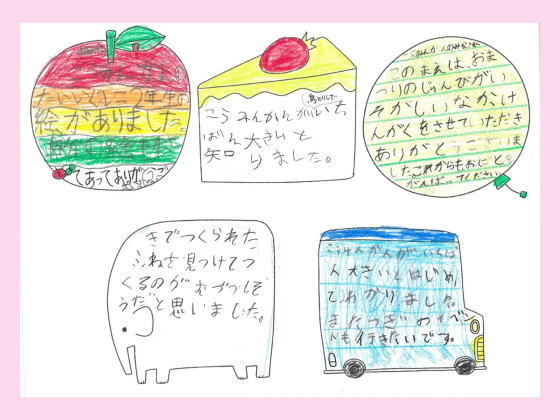 絵がありました。
こうみんかんがいち
ばん大きいと
知りました。
こうみんかんのみなさま
このまえは、おま
つりのじゅんびがい
そがしいなかけ
んがくをさせていただき
ありがとうございま
した。これからもおしごとを
がんばってください。
きでつくられた
ふねを見つけてつ
くるのがむずかしそ
うだと思いました。
こうみんかんがいちば
ん大きいとはじめ
てわかりました。
またつぎのイベン
トも行きたいです。